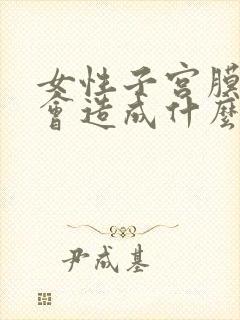 女性子宮膜
會造成什麼
尹成基